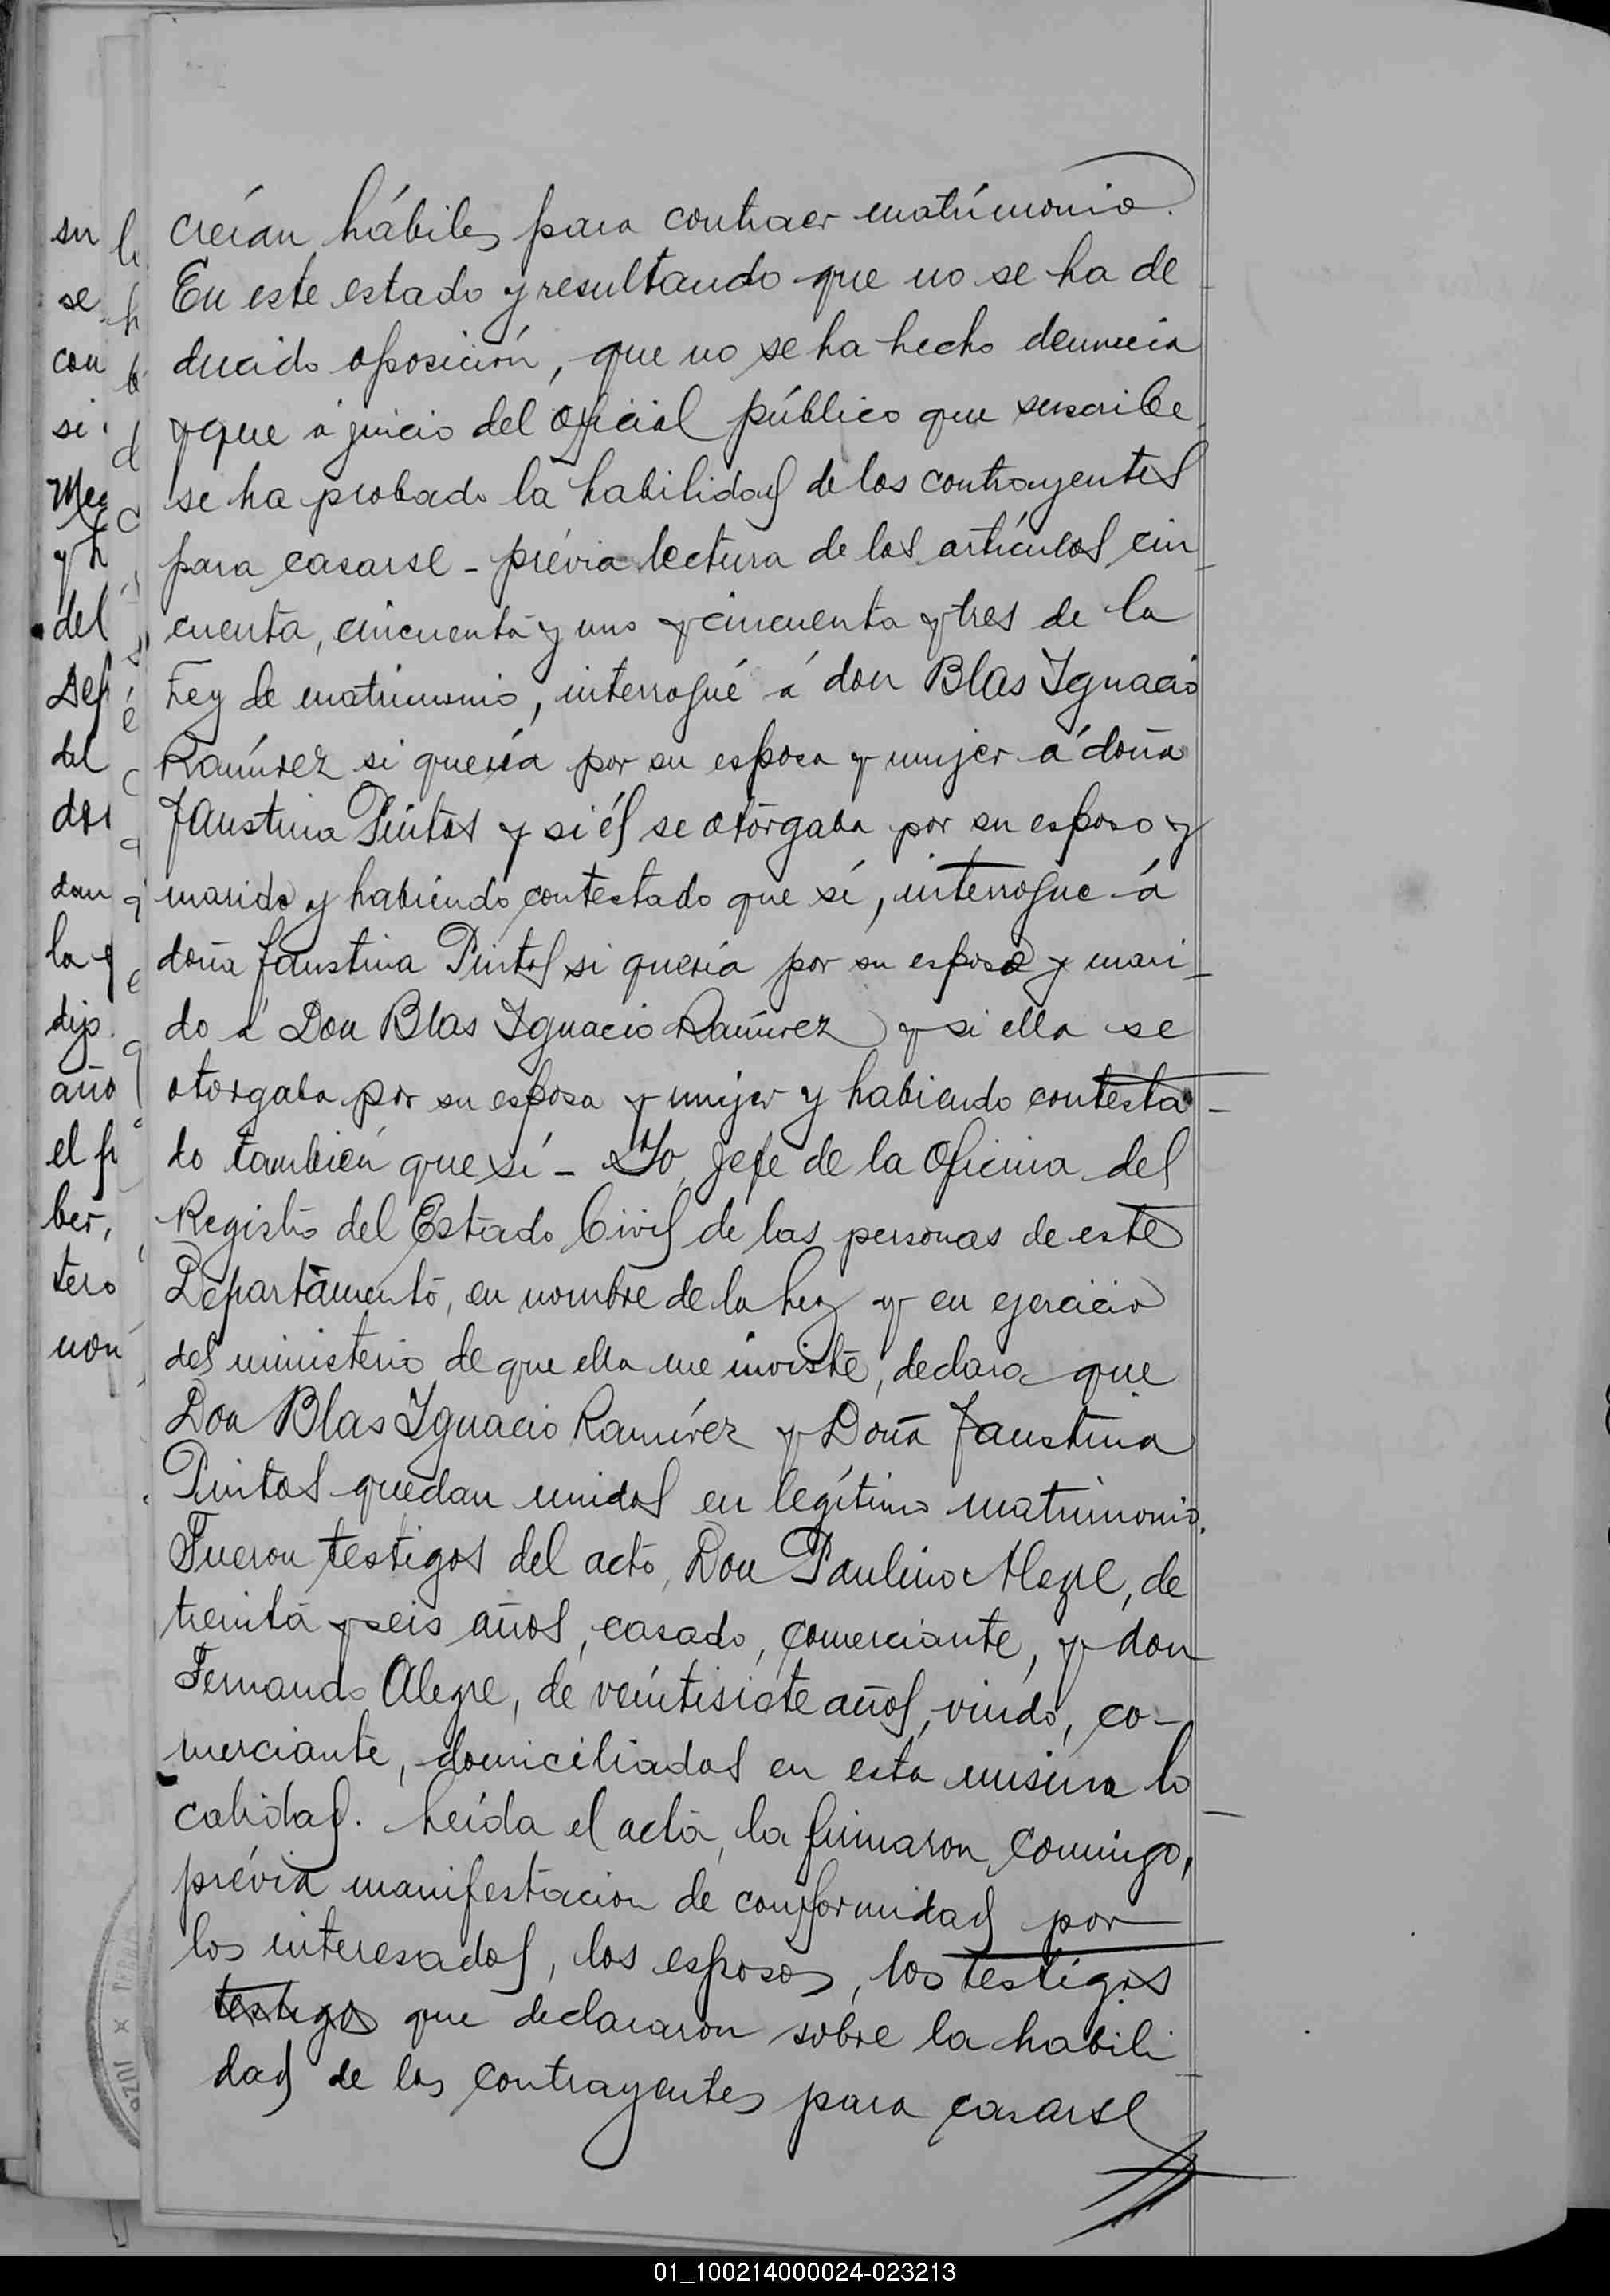 creían hábiles para contraer matrimonio.
En este estado y resultando que no se ha de
ducido oposición, que no se ha hecho denuncia
y que á juicio del Oficial público que suscribe
se ha probado la habilidad de los contrayentes
para casarse - prévia lectura de los artículos cin
cuenta, cincuenta y uno y cincuenta y tres de la
Ley de matrimonio, interrogué á don Blas Ignacio
Ramírez si quería por su esposa y mujer á doña
Faustina Pintos y si él se otorgaba por su esposo y
marido y habiendo contestado que sí, interrogue á
doña Faustina Pintos si quería por su esposo y mari
do á Don Blas Ignacio Ramírez y si ella se
otorgaba por su esposa y mujer y habiendo contesta
do también que sí - Yo, Jefe de la Oficina del
Registro del Estado Civil de las personas de este
Departamento, en nombre de la Ley y en ejercicio
del ministerio de que ella me inviste, declaro que
Don Blas Ignacio Ramírez y Doña Faustina
Pintos quedan unidos en legítimo matrimonio.
Fueron testigos del acto, Don Paulino Alegre, de
treinta y seis años, casado, comerciante, y don
Fernando Alegre, de veintisiete años, viudo, co-
merciante, domiciliados en esta misma lo
calidad. Leída el acta, la firmaron conmigo,
prévia manifestacion de conformidad por
los interesados, los esposos, los testigos
testigos que declararon sobre la habili
dad de los contrayentes para casarse
su
se
con
si
del
del
dijo
año
ber,
tero
01_100214000024-023213